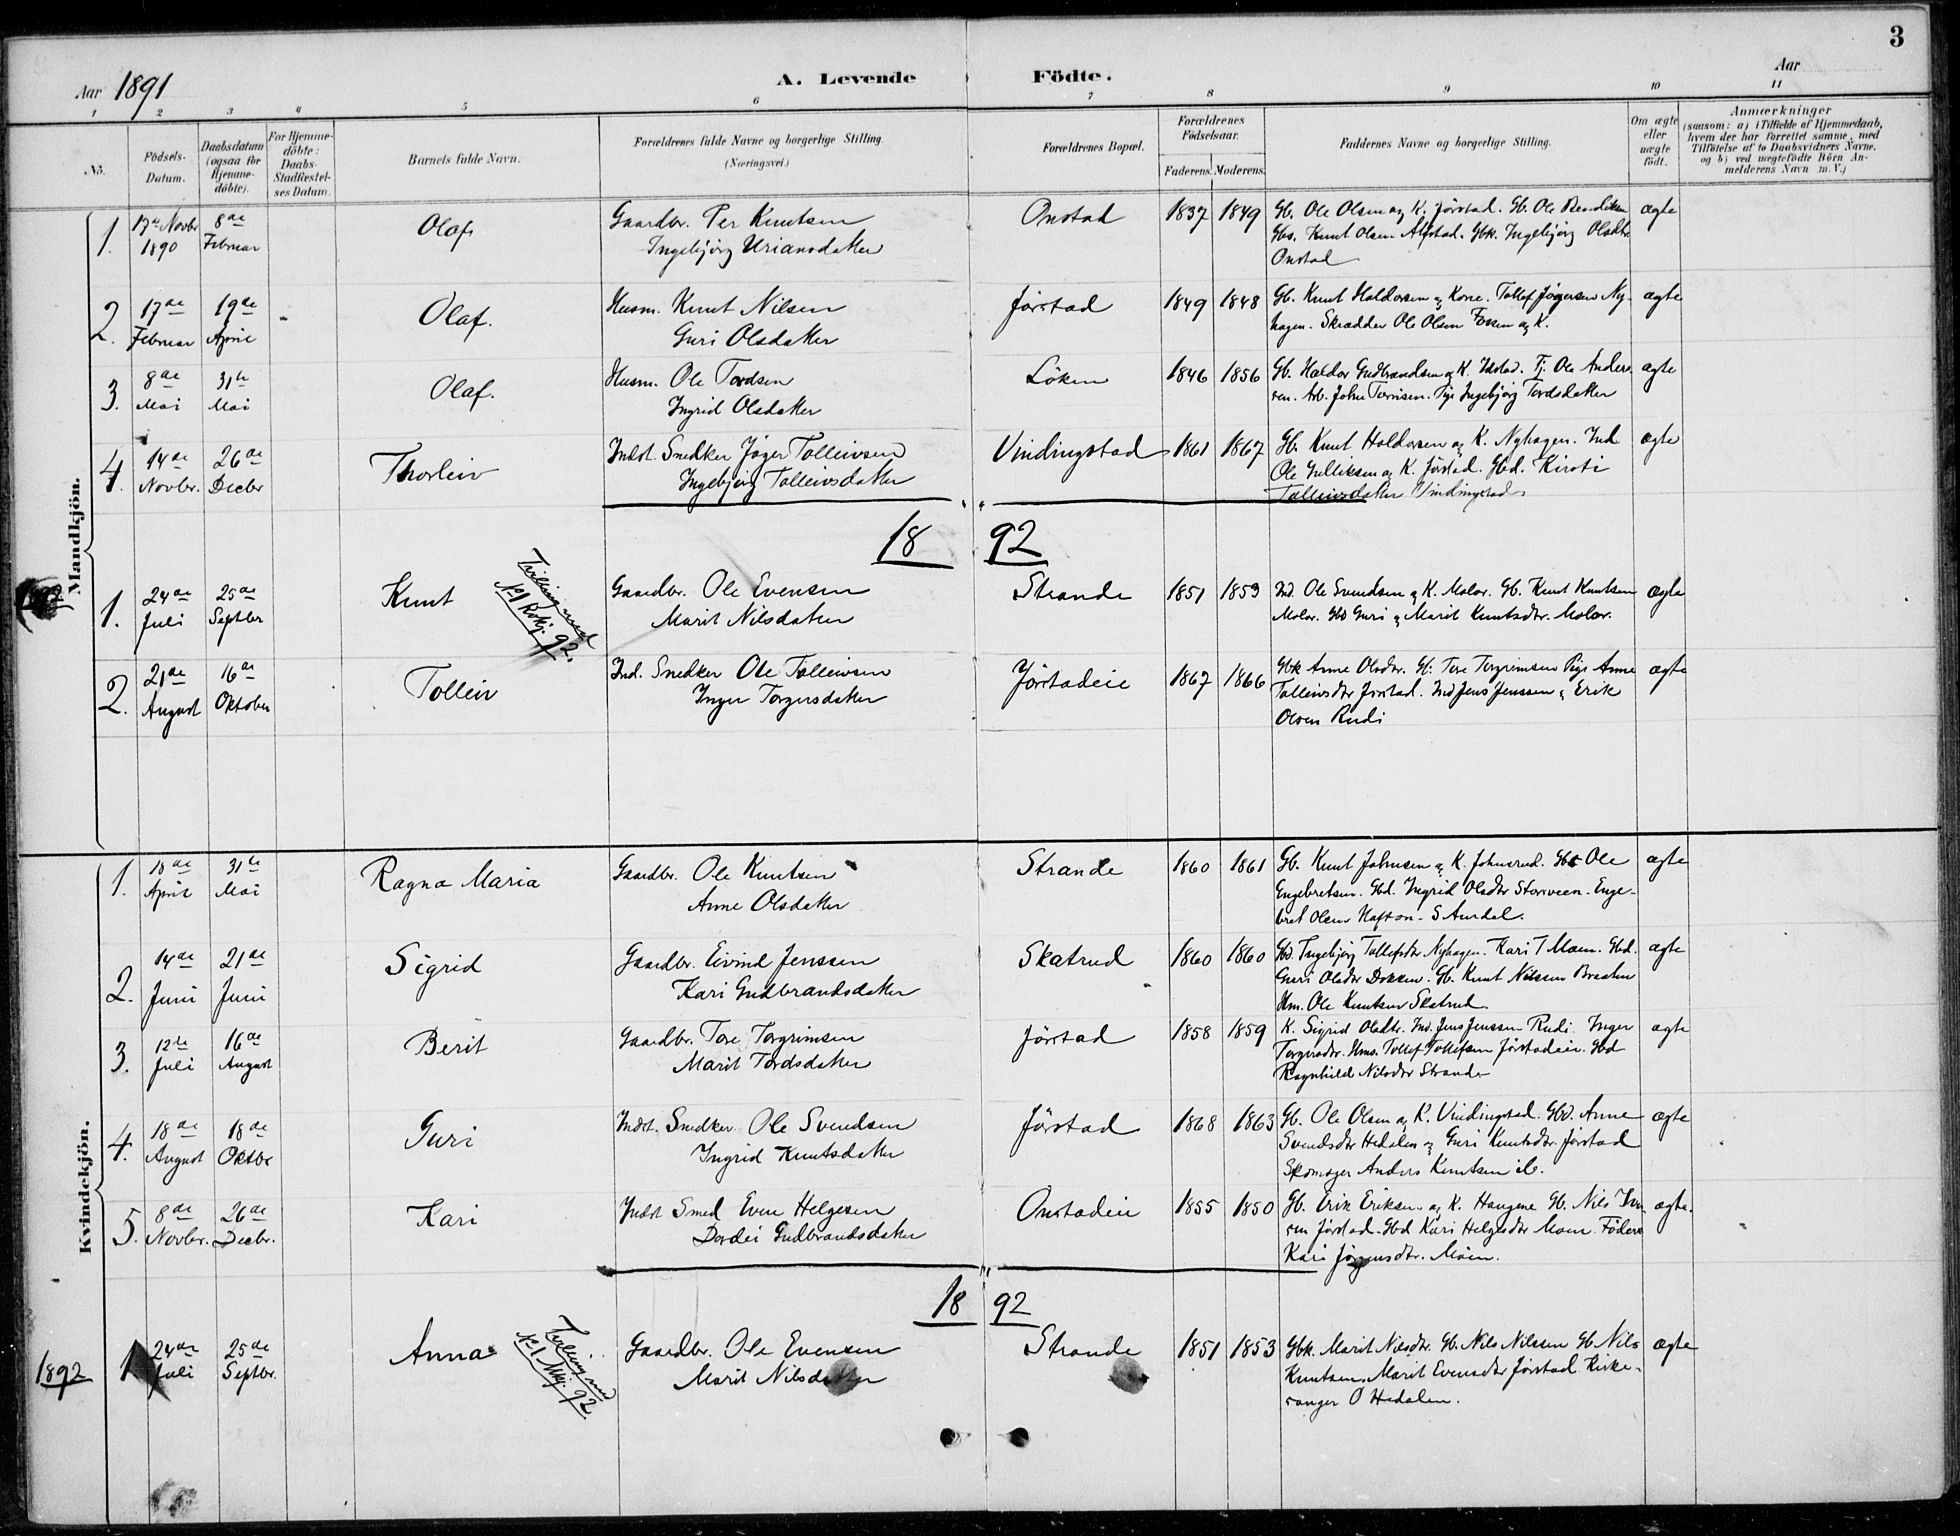 3
Aar 1891
A. Levende Födte.
Aar
1 2 3 4 5 6 7 8 9 10 11
No.
Födsels-Datum.
Daabsdatum (ogsaa for Hjemme-döbte).
For Hjemme-döbte: Daabs-Stadfæstel-ses Datum.
Barnets fulde Navn.
Forældrenes fulde Navne og borgerlige Stilling (Næringsvei.)
Forældrenes Bopæl.
Forældrenes Födselsaar.
Faderens. Moderens.
Faddernes Navne og borgerlige Stilling.
Om ægte eller uægte födt.
Anmærkninger
(saasom: a) i Tilfælde af Hjemmedaab,
hvem der har forrettet samme, med
Tilföielse af to Daabsvidners Navne,
og b) ved uægtefödte Börn An-
melderens Navn m. V.)
Mandkjön.
1. 17de Novbr 1890 8de Februar Olaf Gaardbr. Per Knutsen Onstad 1837 1849 Gb. Ole Olsen og K. Jørstad. Gb. Ole Bendiksen ægte
Ingebjørg Uriansdatter Gbs. Knut Olsen Alfstad. Gbk. Ingebjørg Olsdtr
Onstad
2. 17de Februar 19de April Olaf. Husm. Knut Nilsen Jørstad 1849 1848 Gb. Knut Haldorsen og Kone. Tollef Jøgersen Ny- ægte
Guri Olsdatter hagen. Skrædder Ole Olsen Fossen og K.
3. 8de Mai 31te Mai Olaf. Husm. Ole Tordsen Løken 1846 1856 Gb. Haldor Gudbrandsen og K. Ildstad. Tj. Ole Anders- ægte
Ingrid Olsdatter sen. Arb. John Torrisen. Pige Ingebjørg Tordsdatter
4. 14de Novbr. 26de Decbr Thorleiv Indst. Snedker Jøger Tolleivsen Vindingstad 1861 1867 Gb. Knut Haldorsen og K. Nyhagen. Ind ægte
Ingebjørg Tolleivsdatter Ole Gulliksen og K. Jørstad. Gbd. Kirsti
Tolleivsdatter Vindingstad.
18 92
1892
1. 24de Juli 25de Septbr Knut Tvilling med No 1 Kvkj. 92. Gaardbr. Ole Evensen Strande 1851 1853 Ind. Ole Svendsen og K. Moloe. Gb. Knut Knutsen ægte
Marit Nilsdatter Moloe. Gbd Guri og Marit Knutsdtr. Moloe.
2. 21de August 16de Oktober Tolleiv Ind. Snedker Ole Tolleivsen Jørstadeie 1867 1866 Gbk Anne Olsdtr. Gb: Tore Torgrimsen Pige Anne ægte
Inger Torgersdatter Tolleivsdtr Jørstad. Ind Jens Jenssen og Erik
Olsen Rudi
Kvindekjön.
1. 18de April 31te Mai Ragna Maria Gaardbr. Ole Knutsen Strande 1860 1861 Gb. Knut Johnsen og K. Johnsrud. Gbs Ole ægte
Anne Olsdatter Engebretsen. Gbd. Ingrid Olsdtr Storsveen. Enge-
bret Olsen Hafton. S Aurdal.
2. 14de Juni 21de Juni Sigrid Gaardbr. Eivind Jenssen Skatrud 1860 1860 Gbd. Ingebjørg Tollefsdtr Nyhagen. Kari T Moen. Gbd. ægte
Kari Gudbrandsdatter Guri Olsdtr Dokken. Gb. Knut Nilssen Braaten
Hm. Ole Knutsen Skatrud
3. 12te Juli 16de August Berit Gaardbr. Tore Torgrimsen Jørstad 1858 1859 K. Sigrid Olsdtr. Ind. Jens Jenssen Rudi. Inger ægte
Marit Tordsdatter Torgersdtr. Hms. Tollef Tollefsen Jørstadeie. Gbd
Ragnhild Nilsdtr Strande
4. 18de August 18de Oktbr Guri Indst. Snedker Ole Svendsen Jørstad 1868 1863 Gb. Ole Olsen og K. Vindingstad. Gbd. Anne ægte
Ingrid Knutsdatter Svendsdtr Hedalen og Guri Knutsdtr. Jørstad
Skomager Anders Knutsen ib.
5. 8de Novbr. 26de Decbr. Kari Indst Smed Even Helgesen Onstadeie 1855 1850 Gb. Erik Eriksen og K. Haugene Gb. Nils Iver- ægte.
Dordei Gudbrandsdatter sen Jørstad. Gbd Kari Helgesdtr Moen. Føder.
Kari Jørgensdtr. Moen.
18 92
1892
1 24de Juli 25de Septbr. Anna Tvilling med No 1 Mkj. 92 Gaardbr. Ole Evensen Strande 1851 1853 Gbk. Marit Nilsdtr. Gb. Nils Nilssen Gb Nils ægte
Marit Nilsdatter Knutsen. Marit Evensdtr Jørstad. Kirke-
sanger O Hedalen.